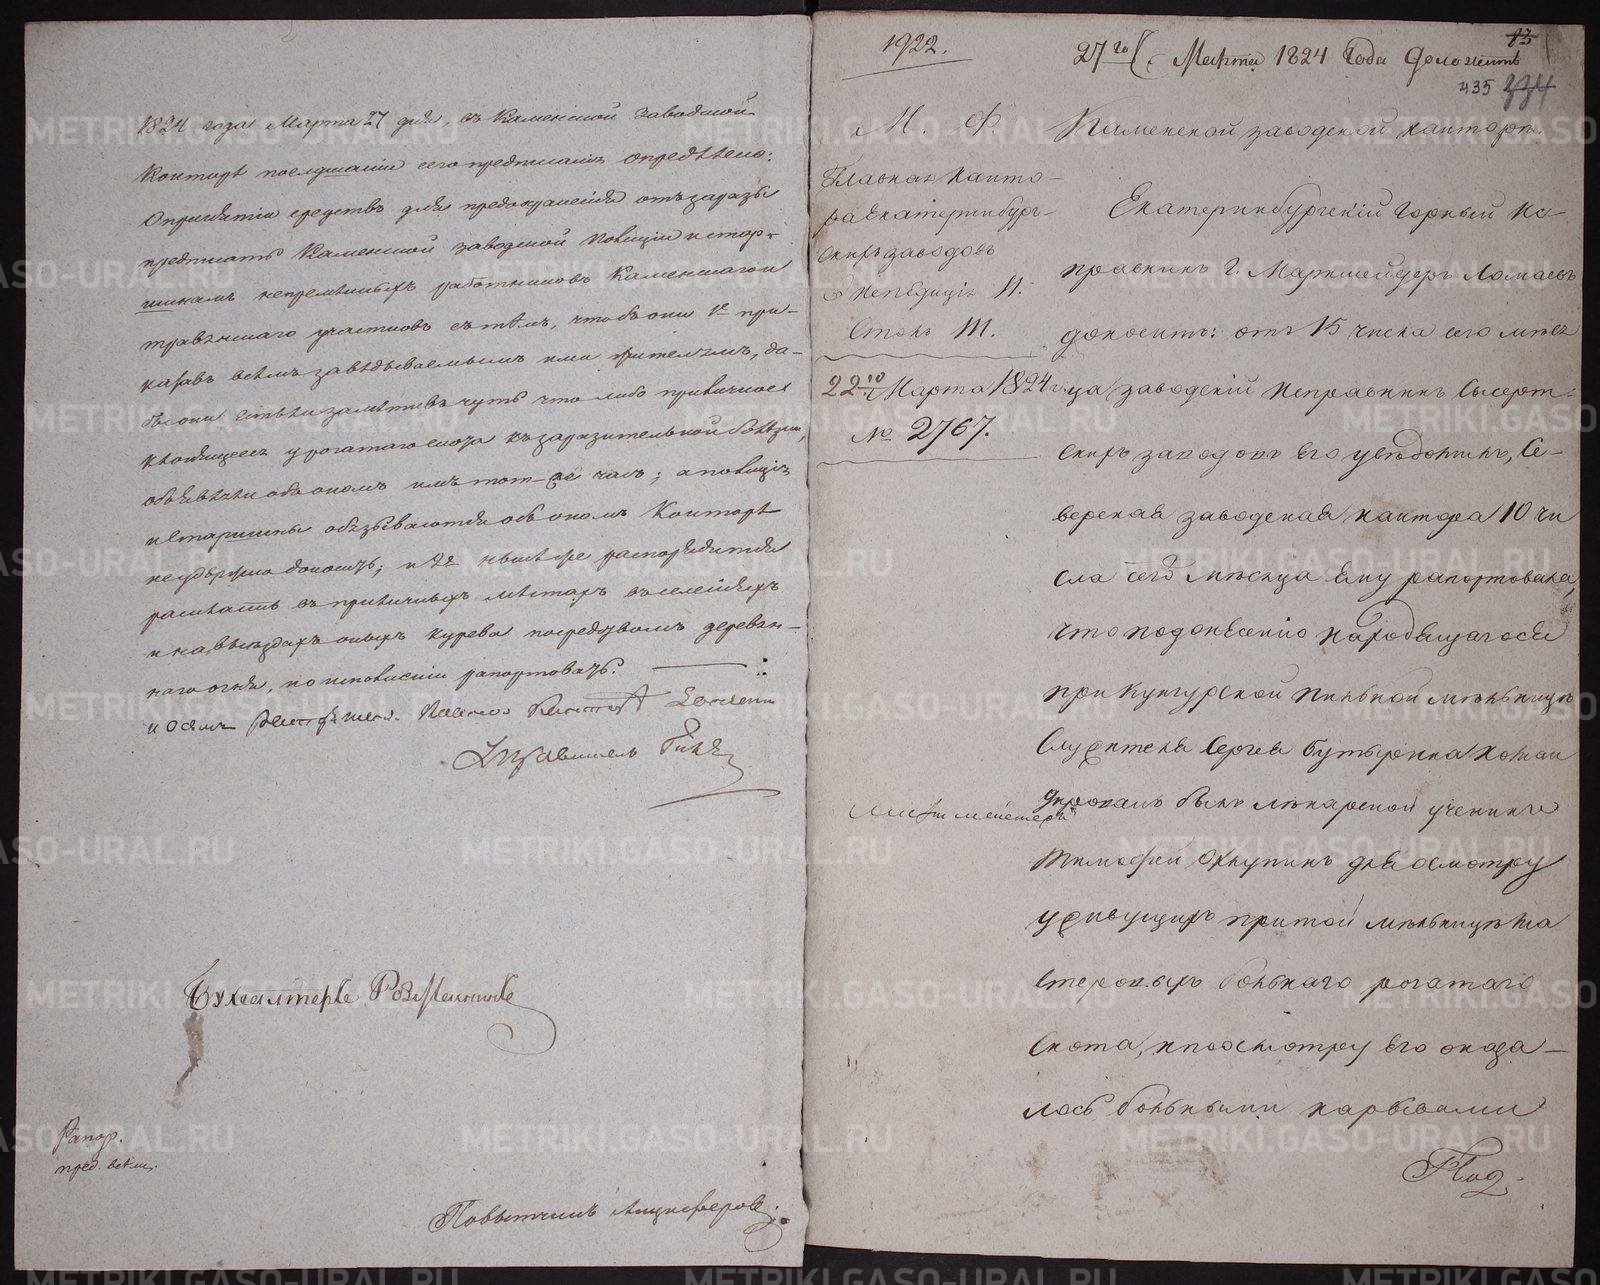 1824 года Марта 27 дня, въ Каменской заводской
Конторѣ по слушаніи сего предписанія опредѣлено:
О принятіи средствъ для предохраненія отъ заразы
предписать Каменской заводской Полиціи и стар-
шинамъ непремѣнныхъ работниковъ Каменскаго и
травянскаго участковъ съ тѣмъ, чтобъ они 1е при-
казавъ всѣмъ завѣдываемымъ ими жителямъ, да-
бы они естьли замѣтивъ чуть что либо
у рогатаго скота къ заразительной болѣзни,
объявляли объ ономъ имъ тотъ же часъ; а полиція
и Старшины обязываются объ ономъ Конторѣ
доносить; и 2е нынѣ же распорядится
въ приличныхъ мѣстахъ въ селеніяхъ
и на выѣздахъ оныхъ курева посредствомъ деревян-
наго огня, и о исполненіи рапортовать.
Управитель
Бухгалтеръ
Рапор.
пред. всѣм.
Повытчикъ
1922.
27го Марта 1824 Года Доложить
13
435 334
М. Ф.
Главная Конто-
ра Екатеринбург-
скихъ заводовъ
Экспедиція II.
Столъ III.
22го Марта 1824 г.
№ 2767.
Каменской заводской канторѣ.
Екатеринбургскій Горный Ис-
правникъ Г. Маркшейдеръ Ломаевъ
доноситъ: отъ 15 числа сего мѣся
ца заводскій Исправникъ Сысерт-
скихъ заводовъ его увѣдомилъ, Се-
верская заводская кантора 10 чи
сла сего мѣсяца ему рапортовала,
что по донесенію находящагося
при Кунгурской пильной мельницѣ
Служителя Сергея Бутырина коман
дированъ былъ лекарской ученикъ
Тимофей для осмотру
у живущихъ при той мельницѣ ма
стеровыхъ больнаго рогатаго
Скота, и по осмотру его оказа-
лось больными нарывами
Под.